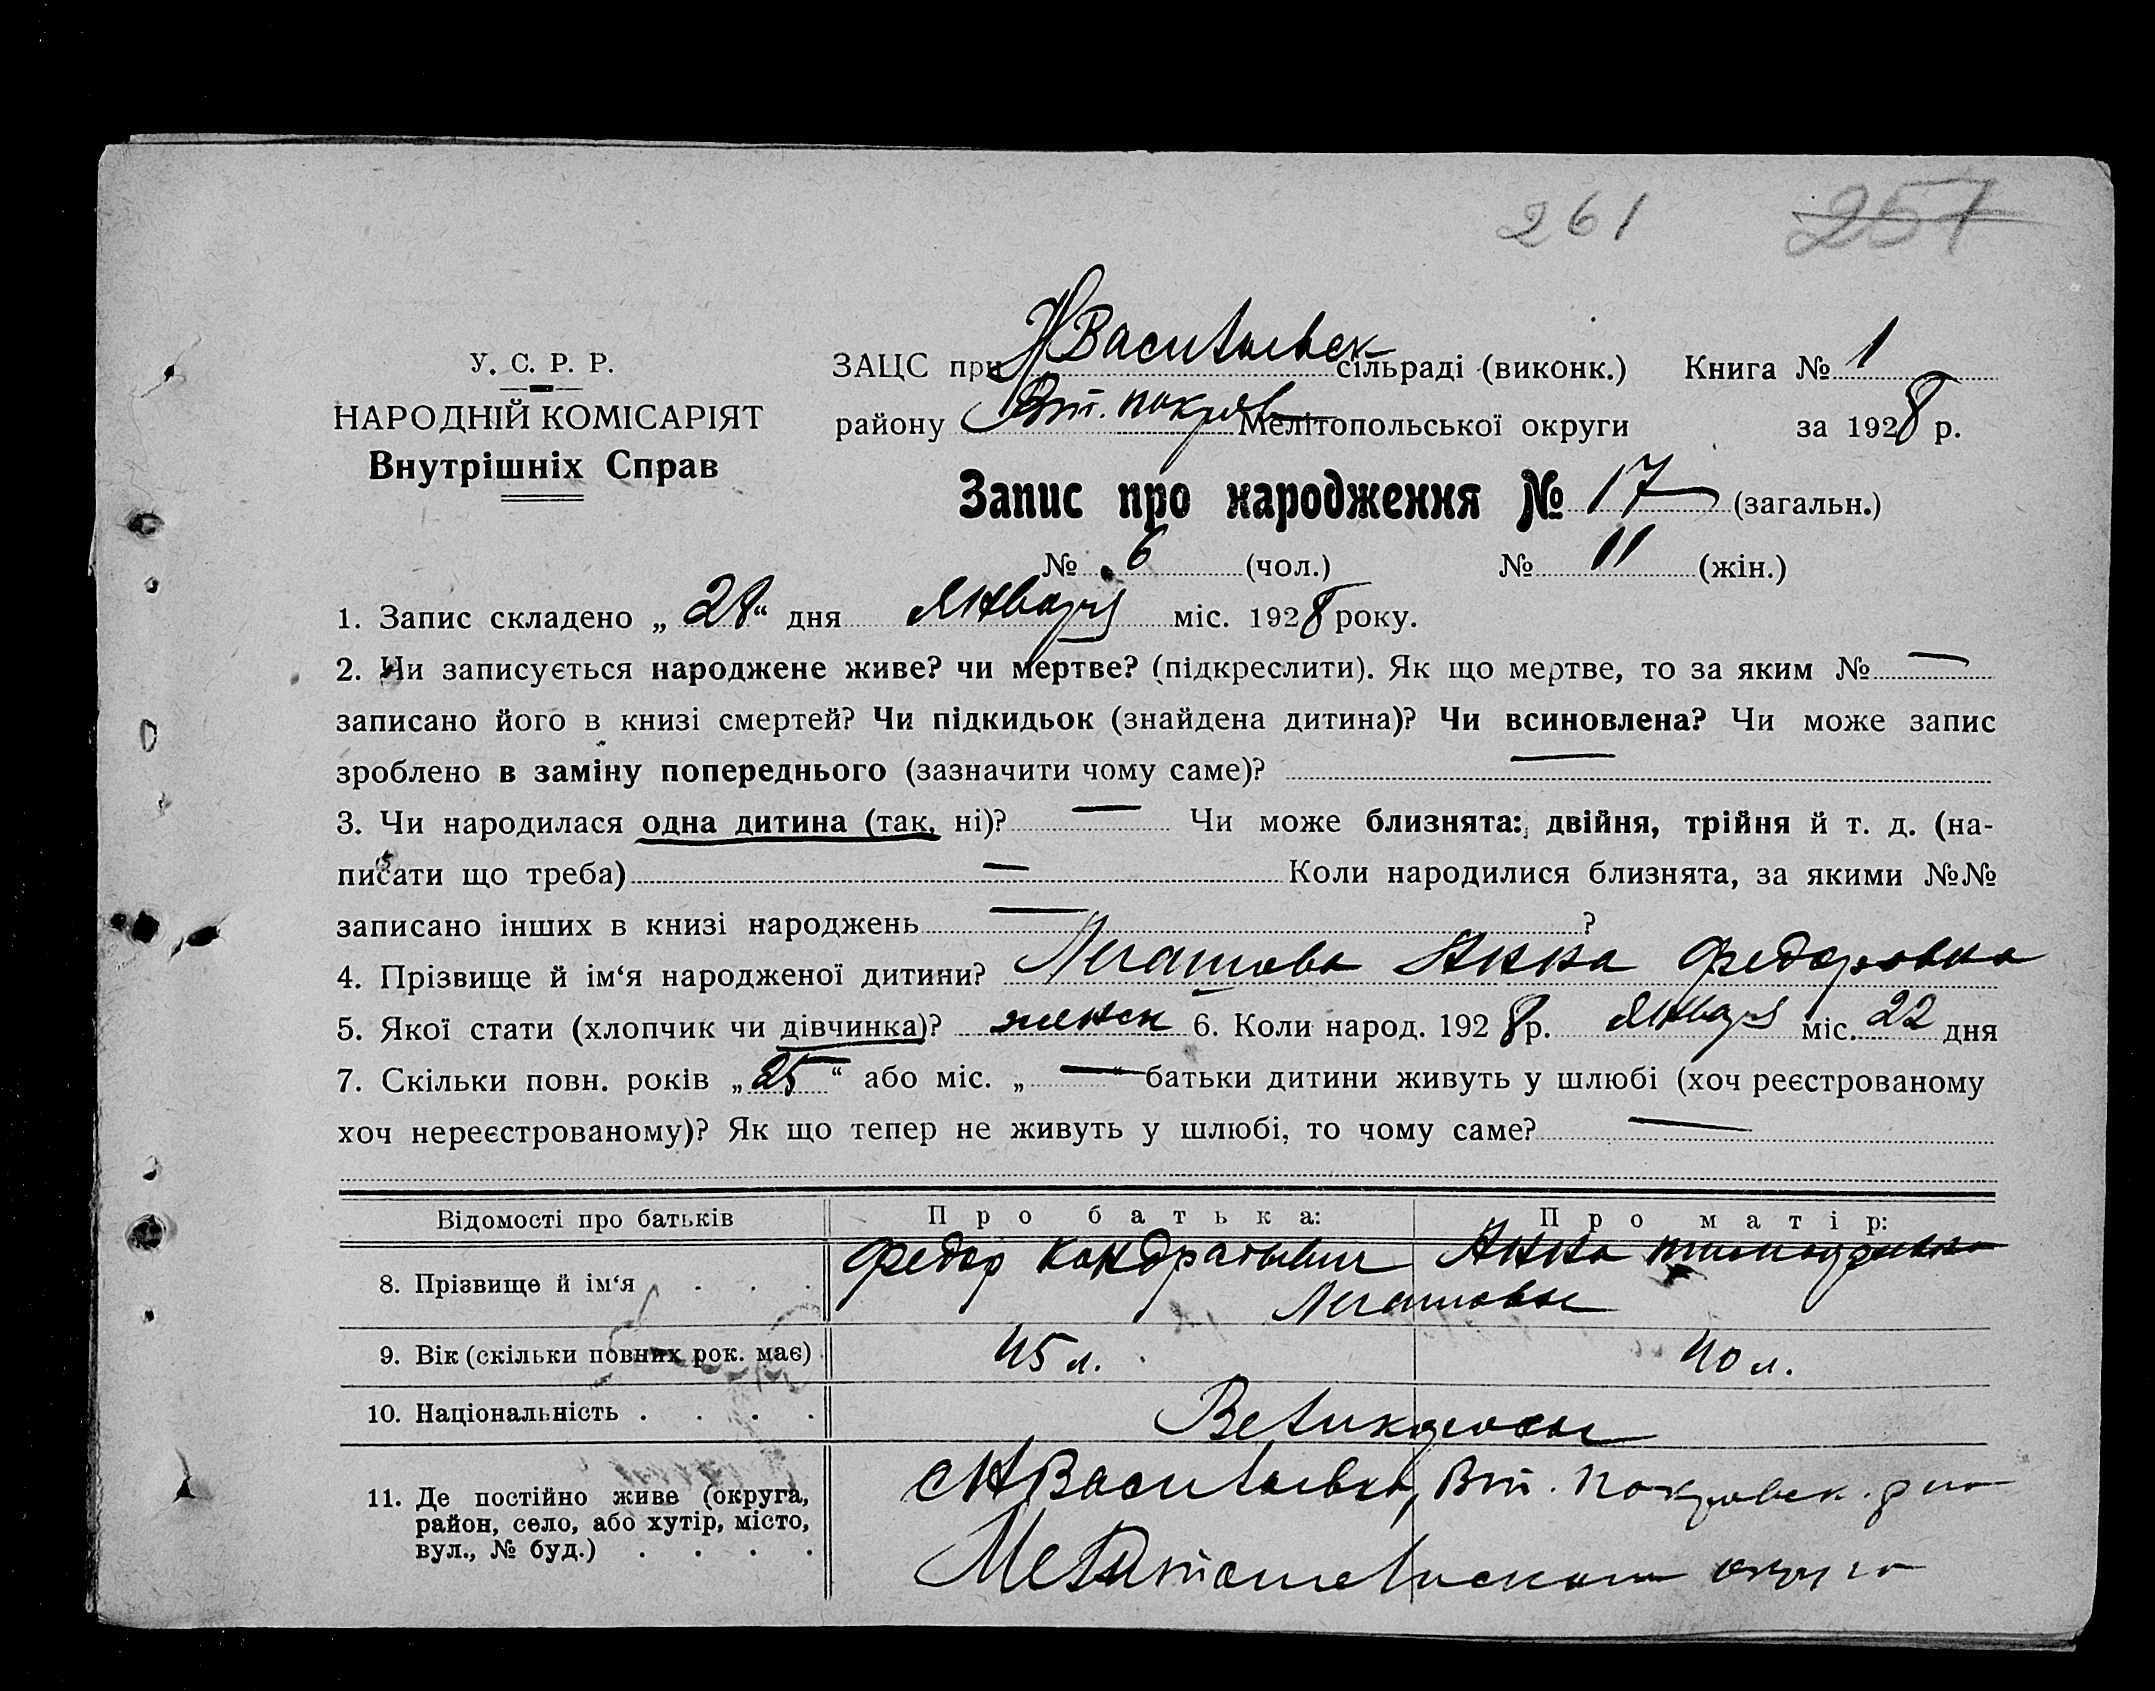 261 257
У. С. Р. Р.
НАРОДНІЙ КОМІСАРІЯТ
Внутрішніх Справ
ЗАЦС при НВасильевск сільраді (виконк.) Книга № 1
району Вт. покров Мелітопольської округи за 1928 р.
Запис про народження № 17 (загальн.)
№ 6 (чол.) № 11 (жін.)
1. Запис складено „ 28 “ дня Января міс. 1928 року.
2. Чи записується народжене живе? чи мертве? (підкреслити). Як що мертве, то за яким № —
записано його в книзі смертей? Чи підкидьок (знайдена дитина)? Чи всиновлена? Чи може запис
зроблено в заміну попереднього (зазначити чому саме)? —
3. Чи народилася одна дитина (так, ні)? — Чи може близнята: двійня, трійня й т. д. (на-
писати що треба) — Коли народилися близнята, за якими №№
записано інших в книзі народжень — ?
4. Прізвище й ім‘я народженої дитини? Анна Федоровна
5. Якої стати (хлопчик чи дівчинка)? женск 6. Коли народ. 1928 р. Января міс. 22 дня
7. Скільки повн. років „ 25 “ або міс. „ — “ батьки дитини живуть у шлюбі (хоч реєстрованому
хоч нереєстрованому)? Як що тепер не живуть у шлюбі, то чому саме? —
Відомості про батьків Про батька: Про матір:
8. Прізвище й ім‘я . . . . Федор Кондратьевич Анна
9. Вік (скільки повних рок. має) 45 л. 40 л.
10. Національність . . . . Великоросы
11. Де постійно живе (округа, с НВасильевка, Вт. Покровск. р-на
район, село, або хутір, місто,
вул., № буд.) . . . . Мелитопольского округа